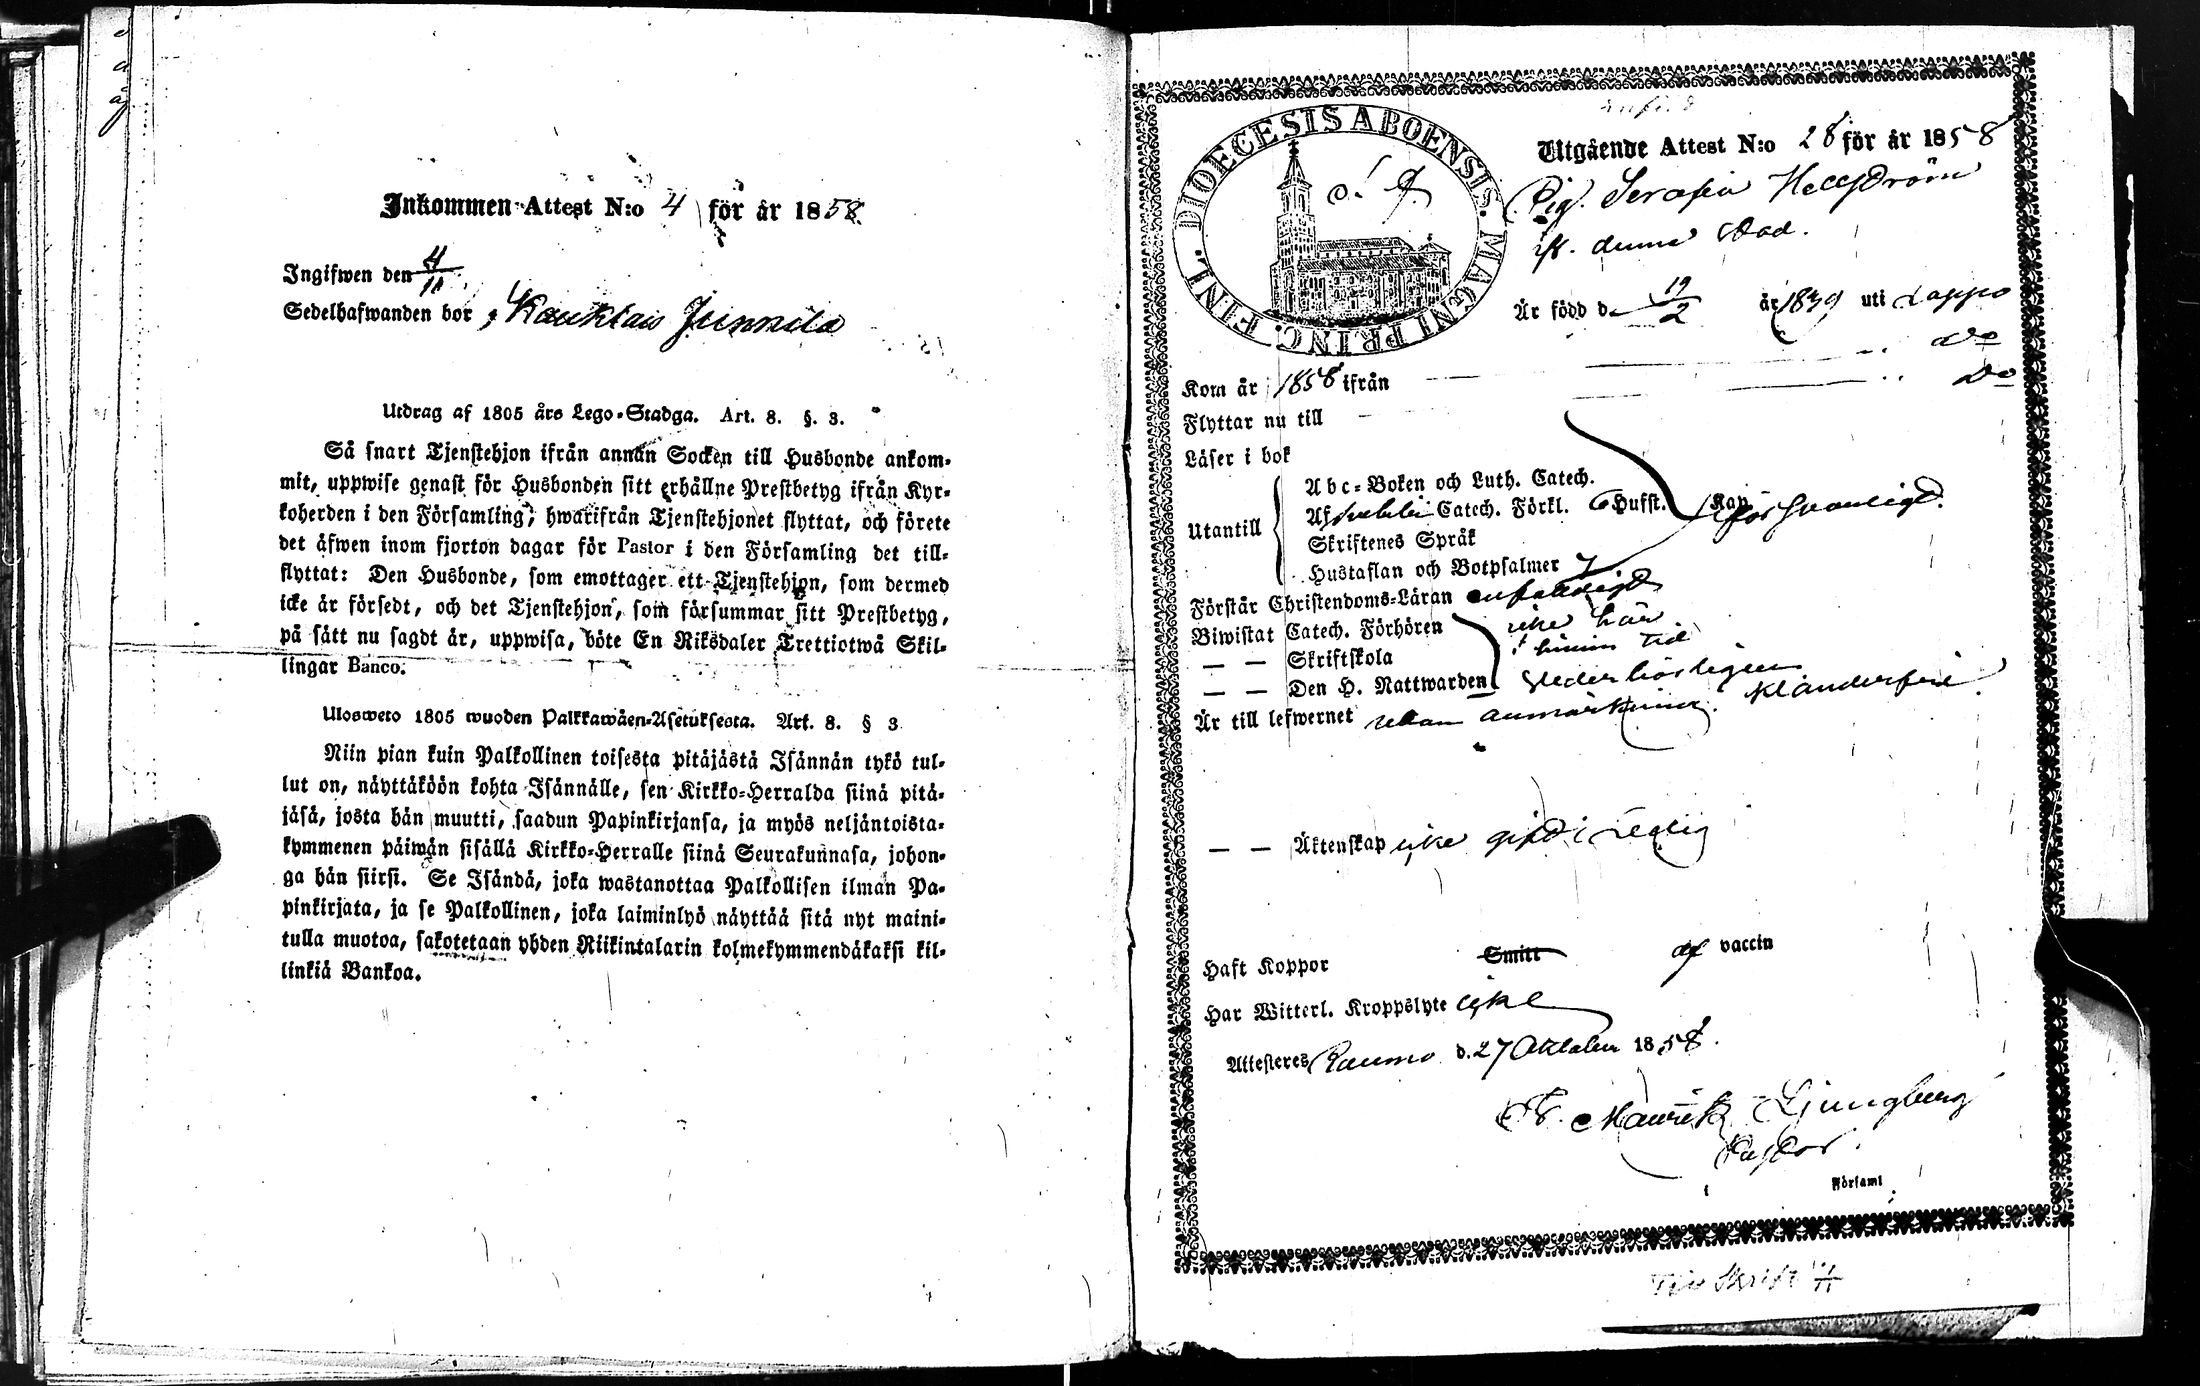 Inkommen Attest N:o 4 för år 1858.
Ingifwen den 4/11.
Sedelhafwanden bor i Kauklais Junnila
Utdrag af 1805 års Lego-Stadga. Art. 8. §. 3.
Så snart Tjenstehjon ifrån annan Socken till Husbonde ankom-
mit, uppwise genast för Husbonden sitt erhållne Prestbetyg ifrån Kyr-
koherden i den Församling, hwarifrån Tjenstehjonet flyttat, och förete
det äfwen inom fjorton dagar för Pastor i den Församling det till-
flyttat: Den Husbonde, som emottager ett Tjenstehjon, som dermed
icke är försedt, och det Tjenstehjon, som försummar sitt Prestbetyg,
på sätt nu sagdt är, uppwisa, böte En Riksdaler Trettiotwå Skil-
lingar Banco.
Ulosweto 1805 wuoden Palkkawäen-Asetuksesta. Art. 8. § 3
Niin pian kuin Palkollinen toisesta pitäjästä Isännän tykö tul-
lut on, näyttäköön kohta Isännälle, sen Kirkko-Herralda siinä pitä-
jäsä, josta hän muutti, saadun Papinkirjansa, ja myös neljäntoista-
kymmenen päiwän sisällä Kirkko-Herralle siinä Seurakunnasa, johon-
ga hän siirsi. Se Isändä, joka wastanottaa Palkollisen ilman Pa-
pinkirjata, ja se Palkollinen, joka laiminlyö näyttää sitä nyt maini-
tulla muotoa, sakotetaan yhden Riikintalarin kolmekymmendäkaksi kil-
linkiä Bankoa.
DIOECESIS ABOENSIS. MAGNI PRINC. FINL.
Utgående Attest N:o 28 för år 1858
Pig. Serafia Hellström
ifr. denna Stad.
Är född d. 19/2 år 1839 uti Lappo
Kom år 1858 ifrån do
Flyttar nu till Do
Läser i bok
Abc-Boken och Luth. Catech.
Utantill Af Svebelii Catech. Förkl. 6 Hufst. Kap försvarligt.
Skriftenes Språk
Hustaflan och Botpsalmer 7
Förstår Christendoms-Läran enfaldigt
Biwistat Catech. Förhören icke här
— — Skriftskola i sinin tid
— — Den H. Nattwarden vederbörligen
Är till lefwernet utan anmärkning. klanderfri.
— — Äktenskap icke gift; ledig
Haft Koppor Smitt af vaccin
Har Witterl. Kroppslyte icke
Attesteras Raumo d. 27 Oktober 1858.
Fr. Mauritz Ljungberg
Pastor.
i Församl
Till Skrift